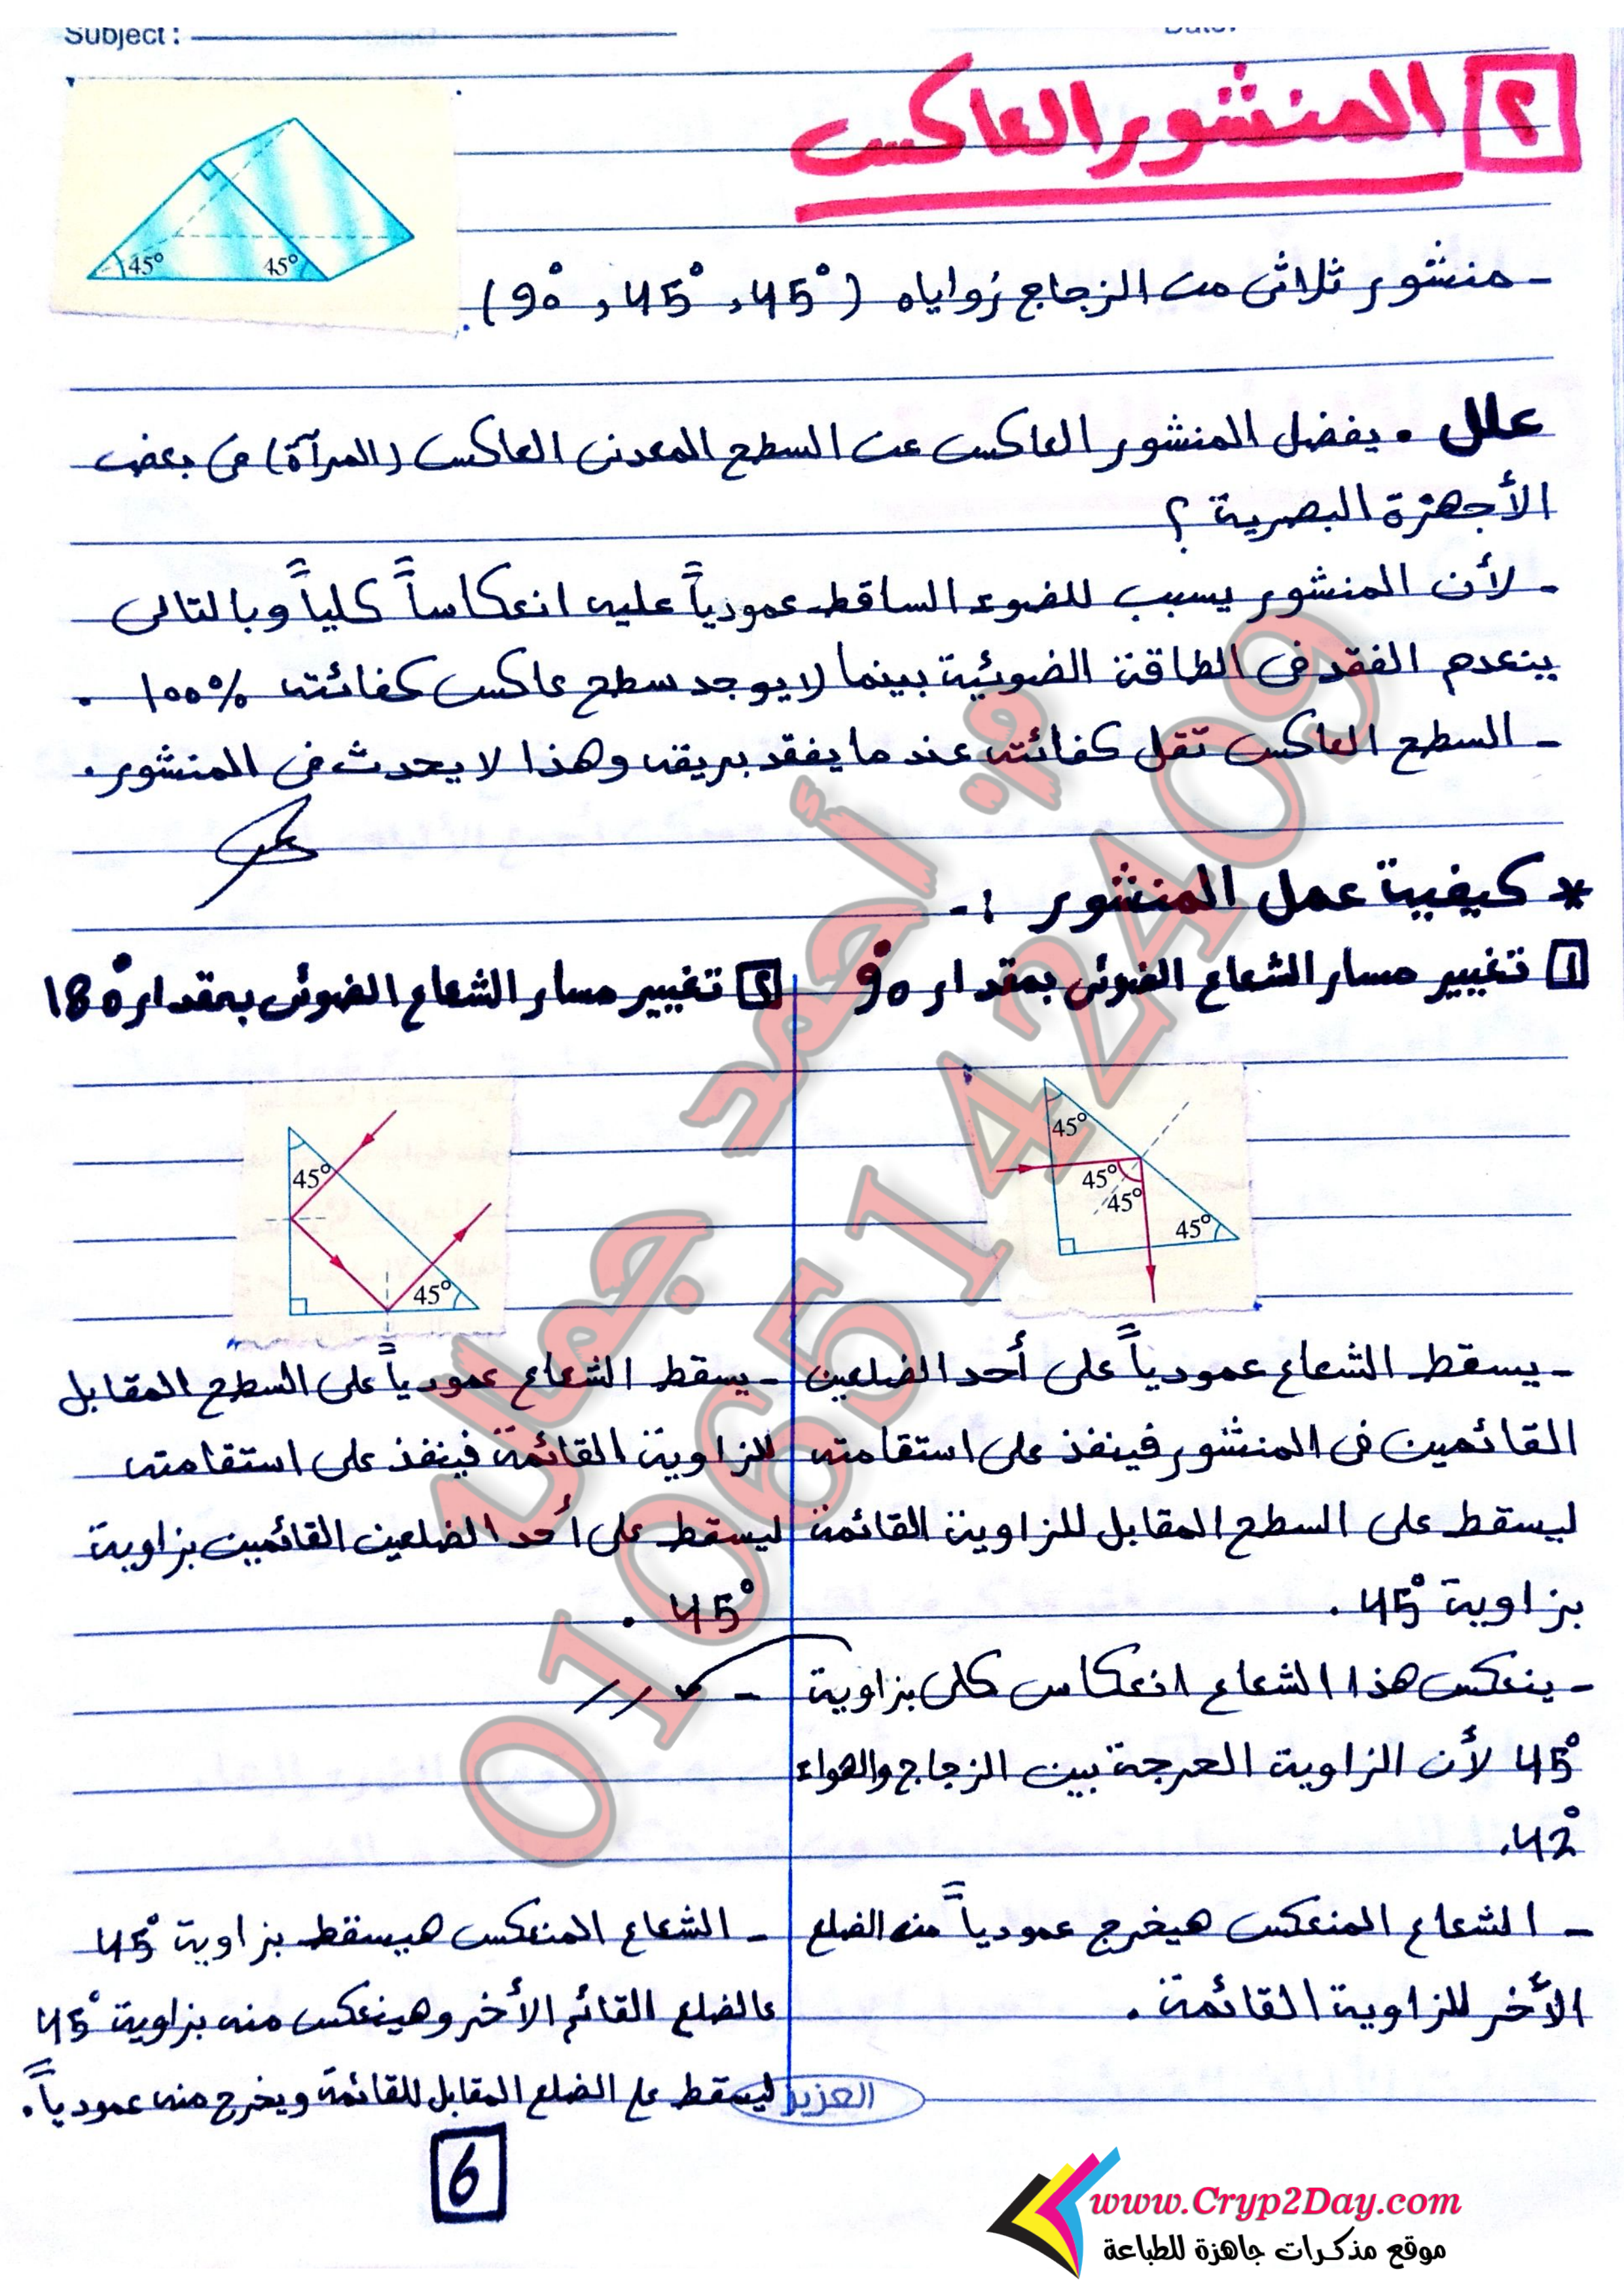 Subject :
Date:
٢ المنشور العاكس
45° 45°
- منشور ثلاثى من الزجاج زواياه (45° , 45° , 90°)
علل . يفضل المنشور العاكس عن السطح المعدنى العاكس (المرآة) فى بعض
الأجهزة البصرية ؟
- لأن المنشور يسبب للضوء الساقط عمودياً عليه انعكاساً كلياً وبالتالى
ينعدم الفقد فى الطاقة الضوئية بينما لا يوجد سطح عاكس كفائته ١٠٠% .
- السطح العاكس تقل كفائته عندما يفقد بريقه وهذا لا يحدث فى المنشور .
* كيفية عمل المنشور :-
1 تغيير مسار الشعاع الضوئى بمقدار 90°
45°
45°
45°
45°
- يسقط الشعاع عمودياً على أحد الضلعين
القائمين فى المنشور فينفذ على استقامته
ليسقط على السطح المقابل للزاوية القائمة
بزاوية 45° .
- ينعكس هذا الشعاع انعكاس كلى بزاوية
45° لأن الزاوية الحرجة بين الزجاج والهواء
42° .
- الشعاع المنعكس هيخرج عمودياً منه الضلع
الأخر للزاوية القائمة .
٢ تغيير مسار الشعاع الضوئى بمقدار 180°
45°
45°
- يسقط الشعاع عمودياً على السطح المقابل
للزاوية القائمة فينفذ على استقامته
ليسقط على أحد الضلعين القائمين بزاوية
45° .
- //
- الشعاع المنعكس هيسقط بزاوية 45°
عالضلع القائم الأخر وهينعكس منه بزاوية 45°
ليسقط على الضلع المقابل للقائمة ويخرج منه عمودياً .
العزيز
6
م. أحمد جمال
01065142409
www.Cryp2Day.com
موقع مذكرات جاهزة للطباعة